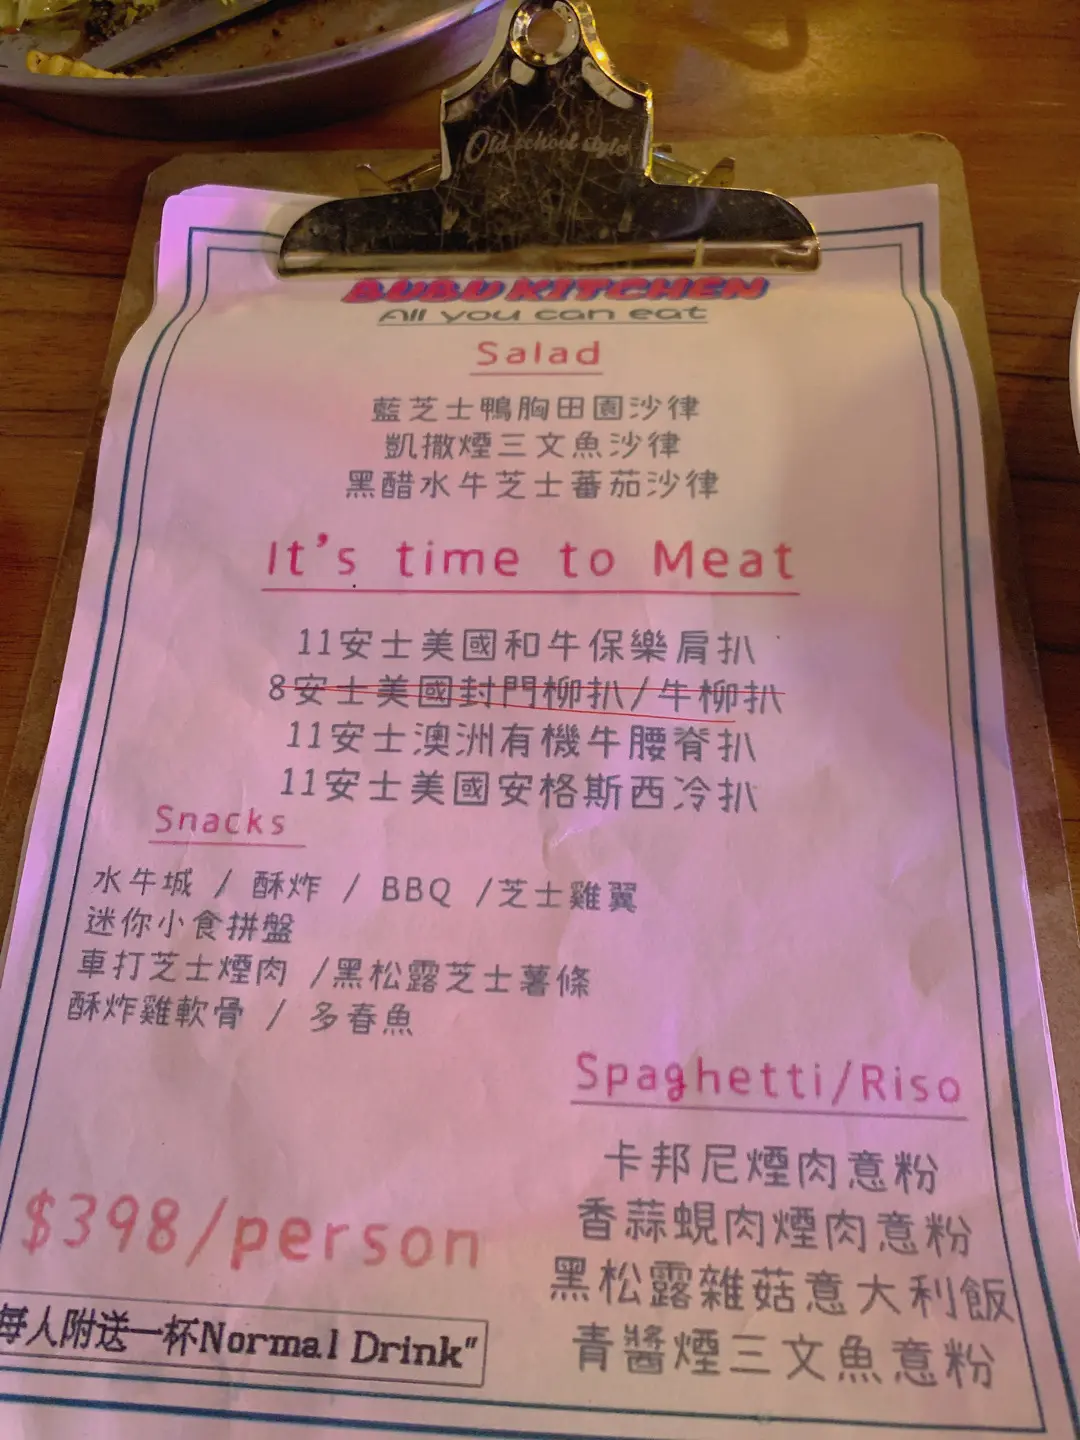 Old school style
BUBU KITCHEN
All you can eat
Salad
藍芝士鴨胸田園沙律
凱撒煙三文魚沙律
黑醋水牛芝士蕃茄沙律
It's time to Meat
11安士美國和牛保樂肩扒
8安士美國封門柳扒/牛柳扒
11安士澳洲有機牛腰脊扒
11安士美國安格斯西冷扒
Snacks
水牛城 / 酥炸 / BBQ /芝士雞翼
迷你小食拼盤
車打芝士煙肉 /黑松露芝士薯條
酥炸雞軟骨 / 多春魚
Spaghetti/Riso
卡邦尼煙肉意粉
香蒜蜆肉煙肉意粉
黑松露雜菇意大利飯
青醬煙三文魚意粉
$398/person
每人附送一杯Normal Drink"